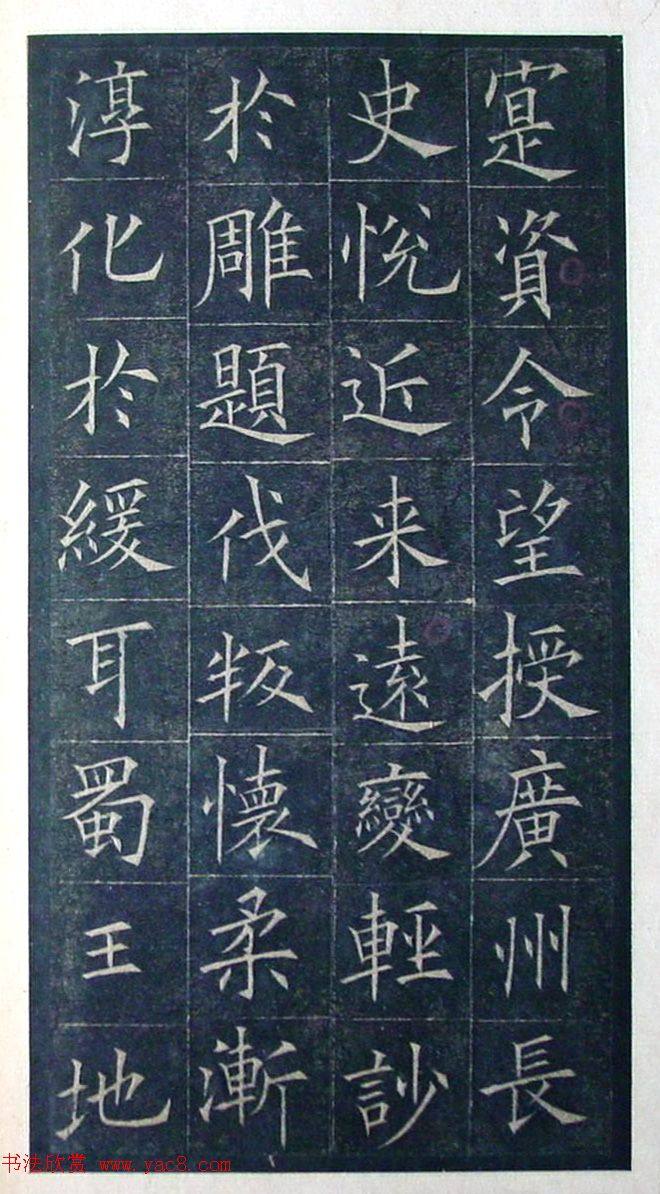 寔資令望授廣州長
史悅近来遠變輕訬
於雕題伐叛懷柔漸
淳化於緩耳蜀王地
书法欣赏 www.yac8.com